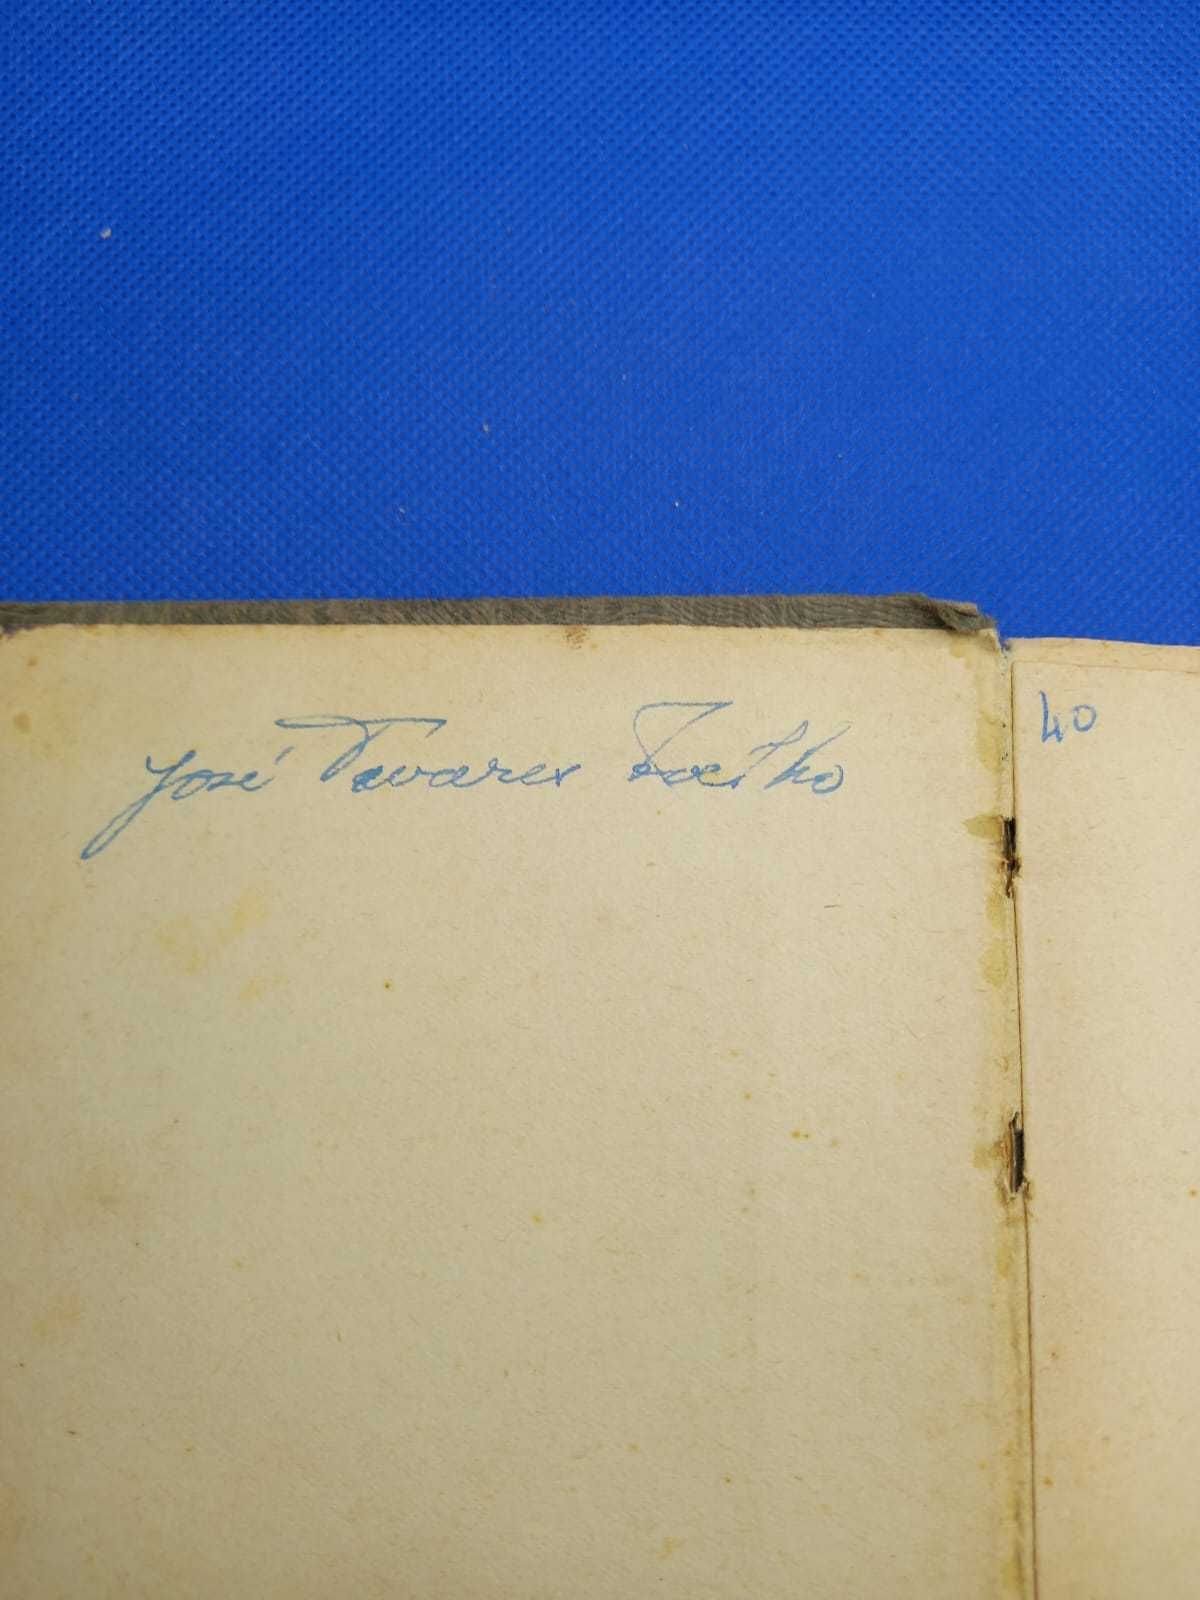 José Tavares Coelho
40